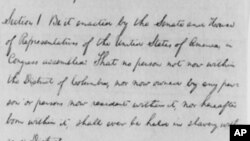 Section 1 Be it enacted by the Senate and House
of Representatives of the United States of America, in
Congress assembled: That no person not now within
the District of Columbia, nor now owned by any per-
son or persons now resident within it, nor hereafter
born within it, shall ever be held in slavery with-
AP